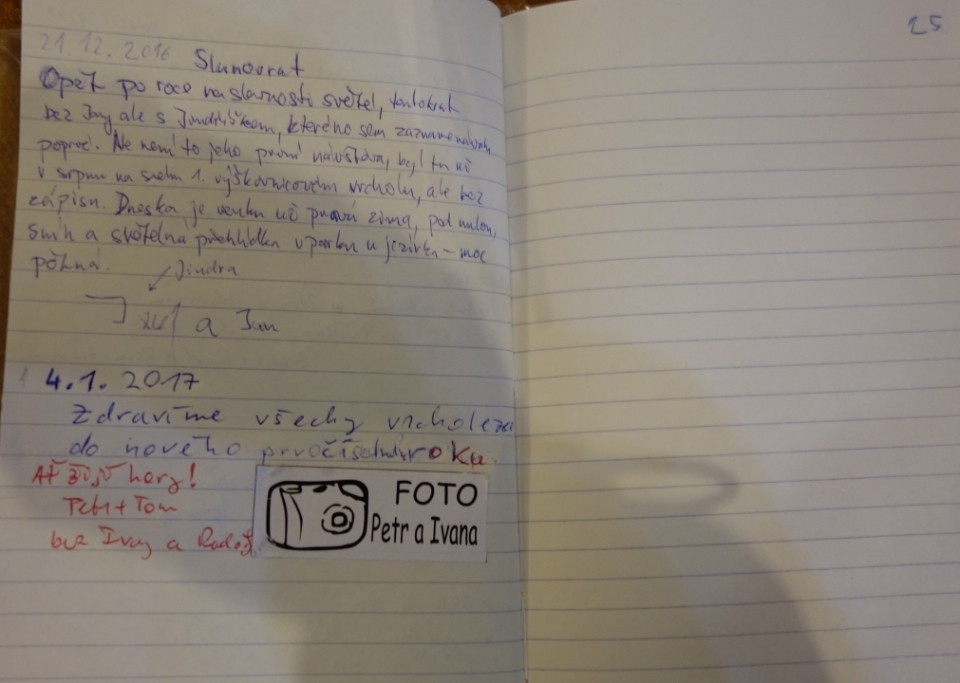 25
21.12.2016 Slunovrat
Opět po roce na slavnosti světel, tentokrát
bez Jany ale s Jindříškem, kterého sem zaznamenávám
poprvé. Ne není to jeho první návštěva, byl tu už
v srpnu na svém 1. výškovnicovém vrcholu, ale bez
zápisu. Dneska je venku už pravá zima, pod nulou,
sníh a světelná přehlídka v parku u jezírka - moc
pěkná.
Jindra
a Jan
4.1.2017
Zdravíme všechy vrcholeze
do nového prvočíselnýroku.
Ať žijí hory!
Petr + Tom
bez Ivy a Radož
FOTO
Petr a Ivana